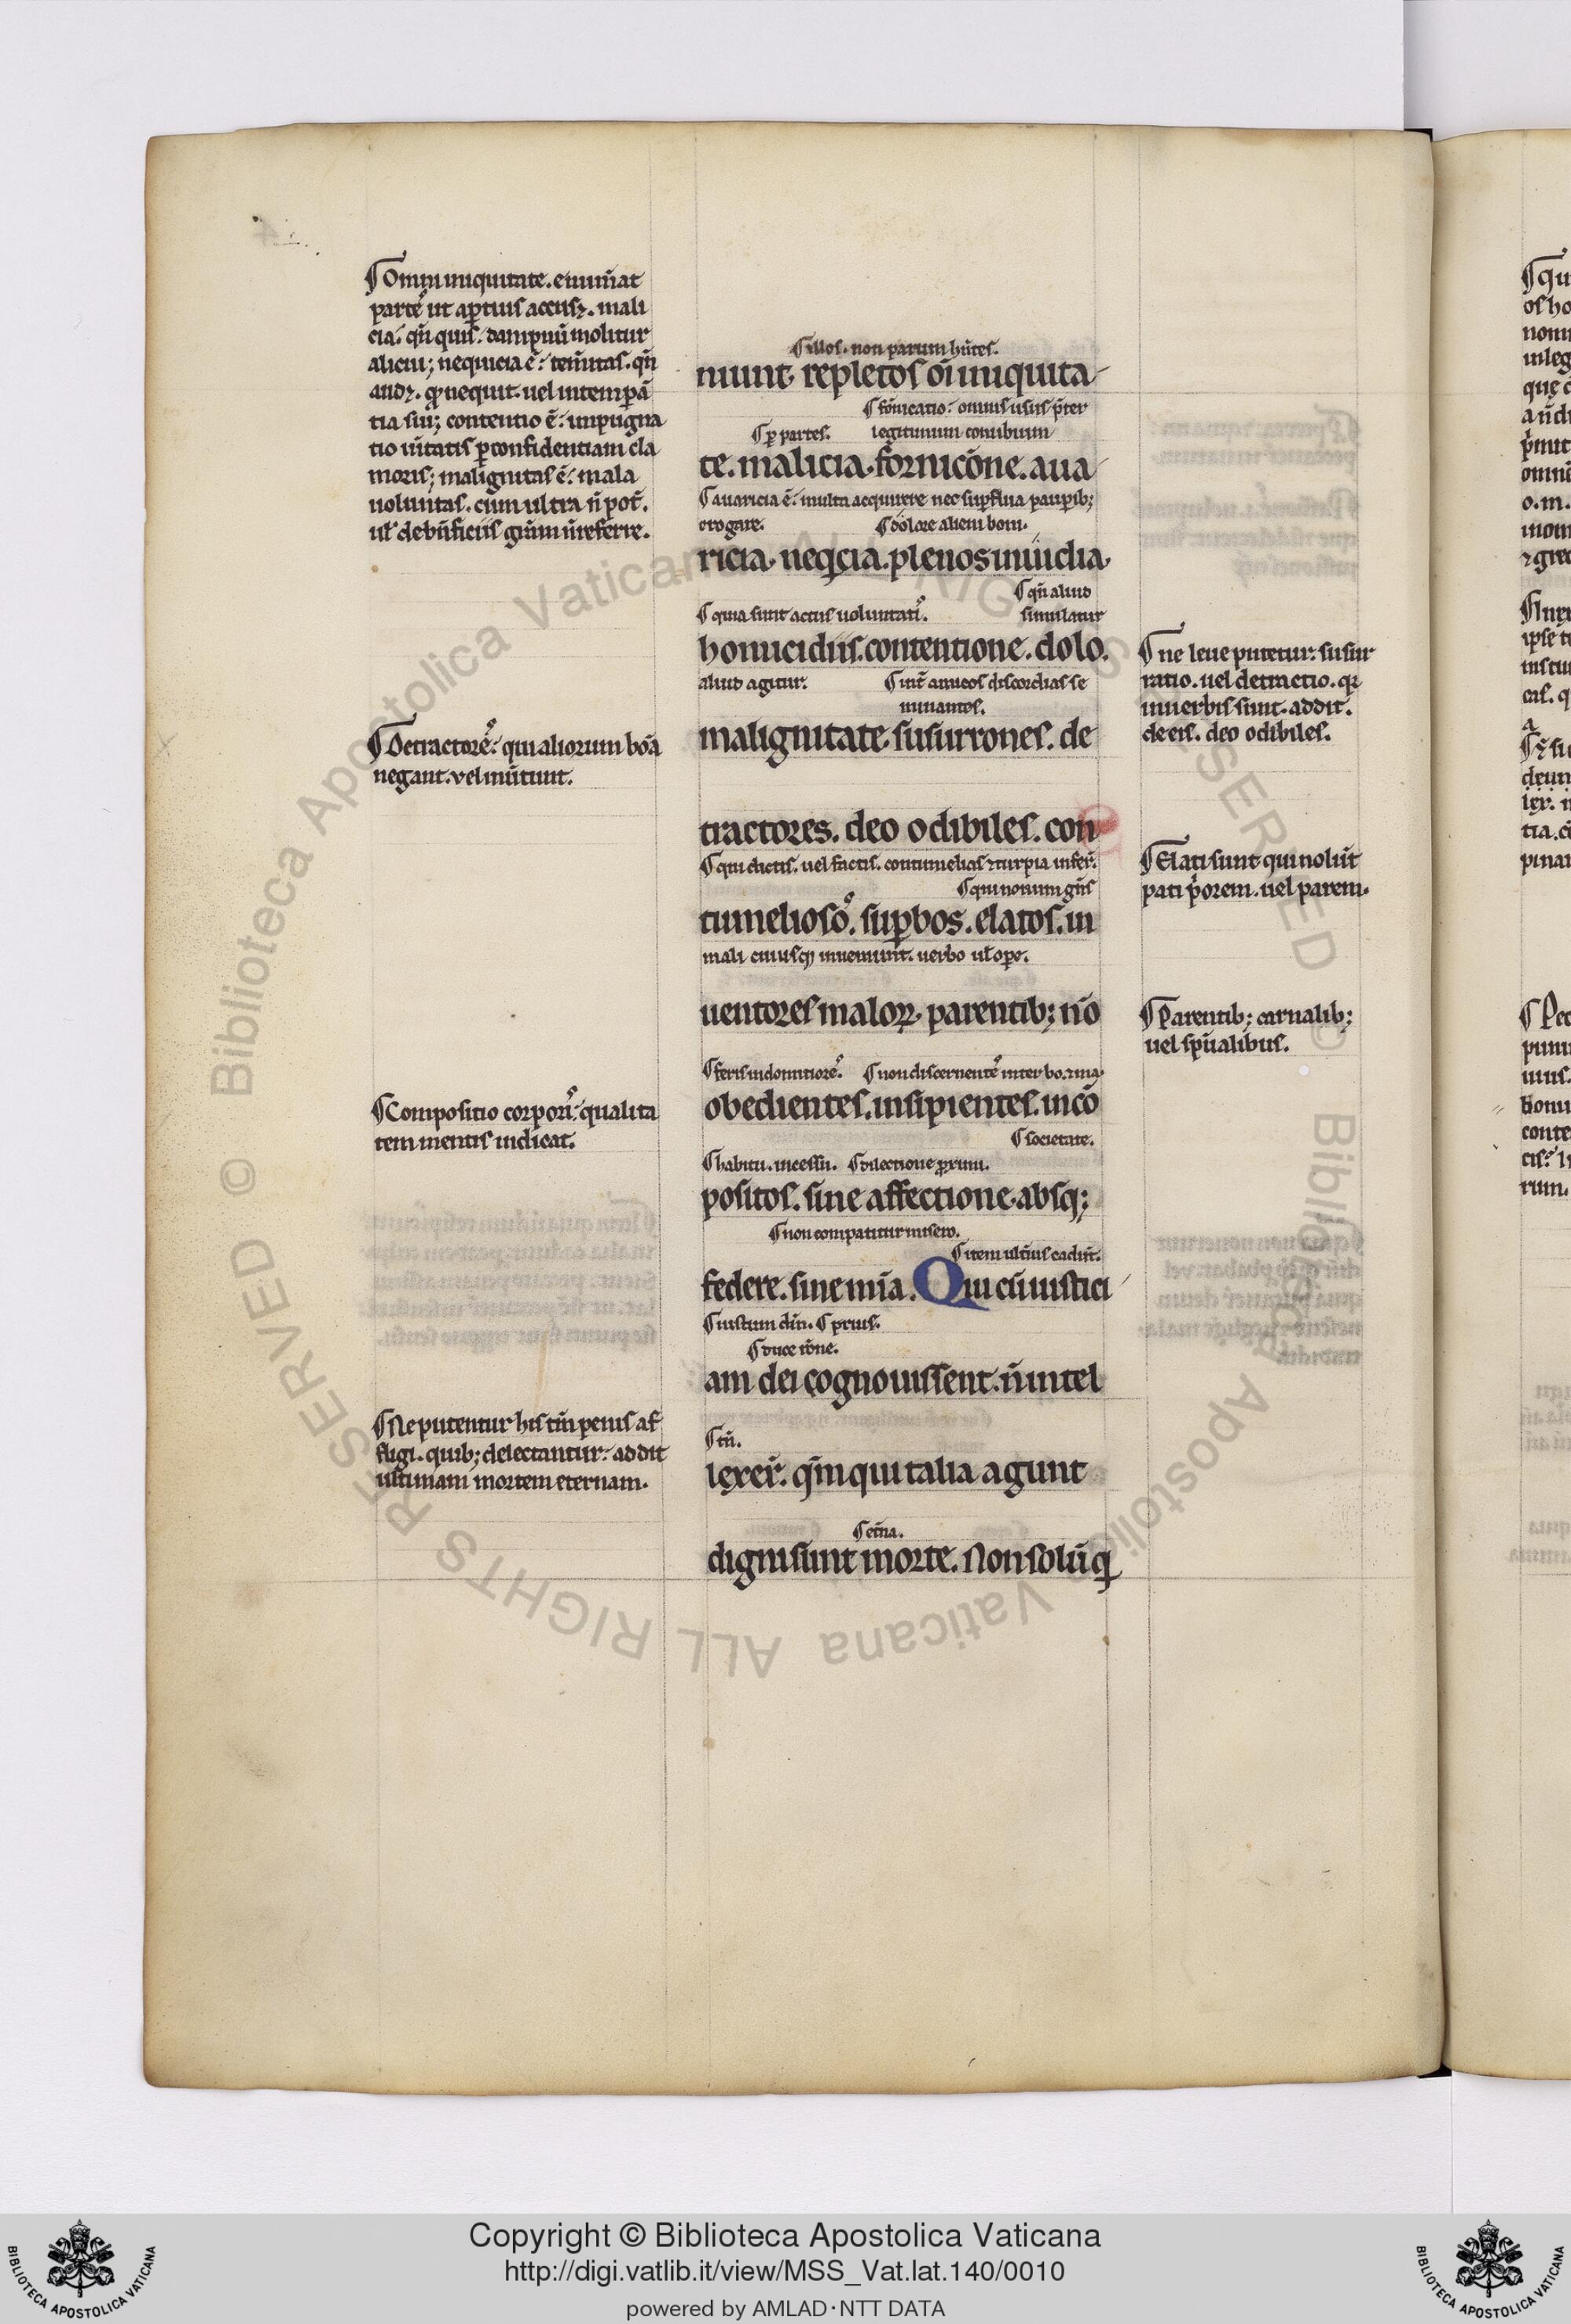 ¶Omni iniquitate. enum̄at
partē ut apertius accusꝫ. mali
cia. qn̄ quis dampnū molitur
alicui; nequicia ē. tem̄itas. qn̄
audꝫ. quod nequit. uel intemperā
tia sui; contentio ē. inpugna
tio ūitatis per confidentiam cla
moris; malignitas ē. mala
uoluntas. cum ultra n̄ pot̄.
ul̄ de bn̄ficiis grām n̄ referre.
¶Detractores. qui aliorum bona
negant. vel inūtunt.
¶Compositio corporis. qualita
tem mentis indicat.
¶Ne putentur his tm̄ penis af
fligi. quib; delectantur. addit
ultimam mortem eternam.
¶illos. non parum hn̄tes.
niunt repletos oi iniquita
¶fornicatio. omnis usus p̄ter
¶per partes. legitimum conubium
te. malicia. fornicōne. aua
¶auaricia ē. multa acquirere nec supflua paupib;
erogare. ¶dolore alieni boni.
ricia. neqicia. plenos inuidia
¶qn̄ aliud
¶quia sunt actus uoluntatis. simulatur
homicidiis. contentione. dolo.
aliud agitur. ¶int̄ amicos discordias se
minantes.
malignitate. susurrones. de
tractores. deo odibiles. con
¶qui dictis. uel factis. contumelias et turpia infer̄.
¶qui nouum gn̄s
tumeliosos. supbos. elatos. in
mali cuiusque inuenint. uerbo ul̄ ope.
uentores maloꝝ. parentib; nō
¶feris indomitiores. ¶non discernentes inter bo. et ma.
obedientes. insipientes. incō
¶societate.
¶habitu. incessu. ¶dilectione proximi.
positos. sine affectione. absq;
¶non compatitur misero.
¶item ultius cadūt.
federe. sine mīa. Qui cū iustici
¶iustum dm̄. ¶prius.
¶duce rōne.
am dei cognouissent. n̄ intel
¶tn̄.
lexer̄. qm̄ qui talia agunt
¶etn̄a.
digni sunt morte. Non solū qi
¶ne leue putetur. susur
ratio. uel detractio. quia
in uerbis sunt. addit.
de eis. deo odibiles.
¶Elati sunt qui nolūt
pati p̄orem. uel parem.
¶Parentib; carnalib;
uel spūalibus.
Biblioteca Apostolica Vaticana ALL RIGHTS RESERVED ©
Copyright © Biblioteca Apostolica Vaticana
http://digi.vatlib.it/view/MSS_Vat.lat.140/0010
powered by AMLAD·NTT DATA
BIBLIOTECA APOSTOLICA VATICANA
BIBLIOTECA APOSTOLICA VATICANA